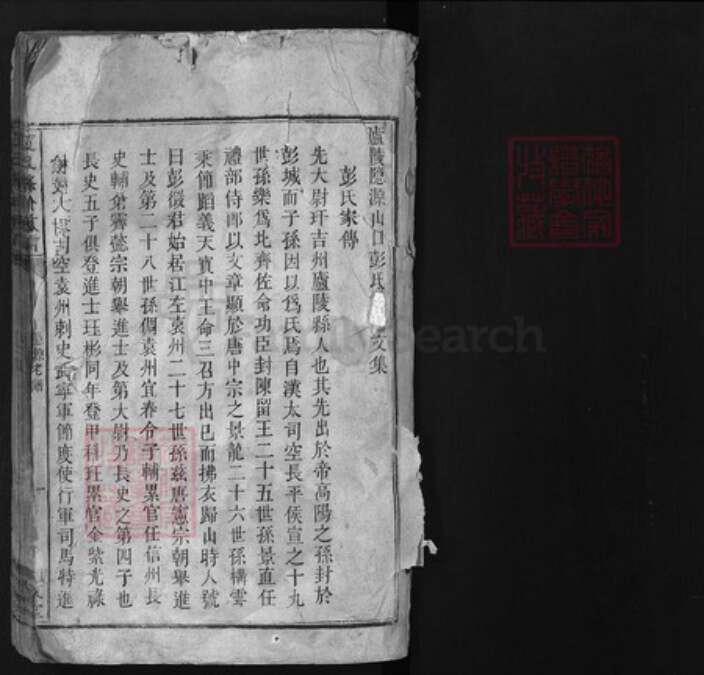 廬陵隱源山口彭氏文集
彭氏家傳
先大尉玕吉州廬陵縣人也其先出於帝高陽之孫封於
彭城而子孫因以爲氏焉自漢太司空長平侯宣之十九
世孫樂爲北齊佐命功臣封陳留王二十五世孫景直任
禮部侍郎以文章顯於唐中宗之景龍二十六世孫構雲
秉節蹈義天寶中王命三召方出已而拂衣歸山時人號
曰彭徵君始居江左袁州二十七世孫茲唐憲宗朝舉進
士及第二十八世孫倜袁州宜春令子輔累官任信州長
史輔弟霽懿宗朝舉進士及第大尉乃長史之第四子也
長史五子俱登進士玨彬同年登甲科玨累官金紫光祿
大檢司空袁州刺史武寧軍節度使行軍司馬特進
search